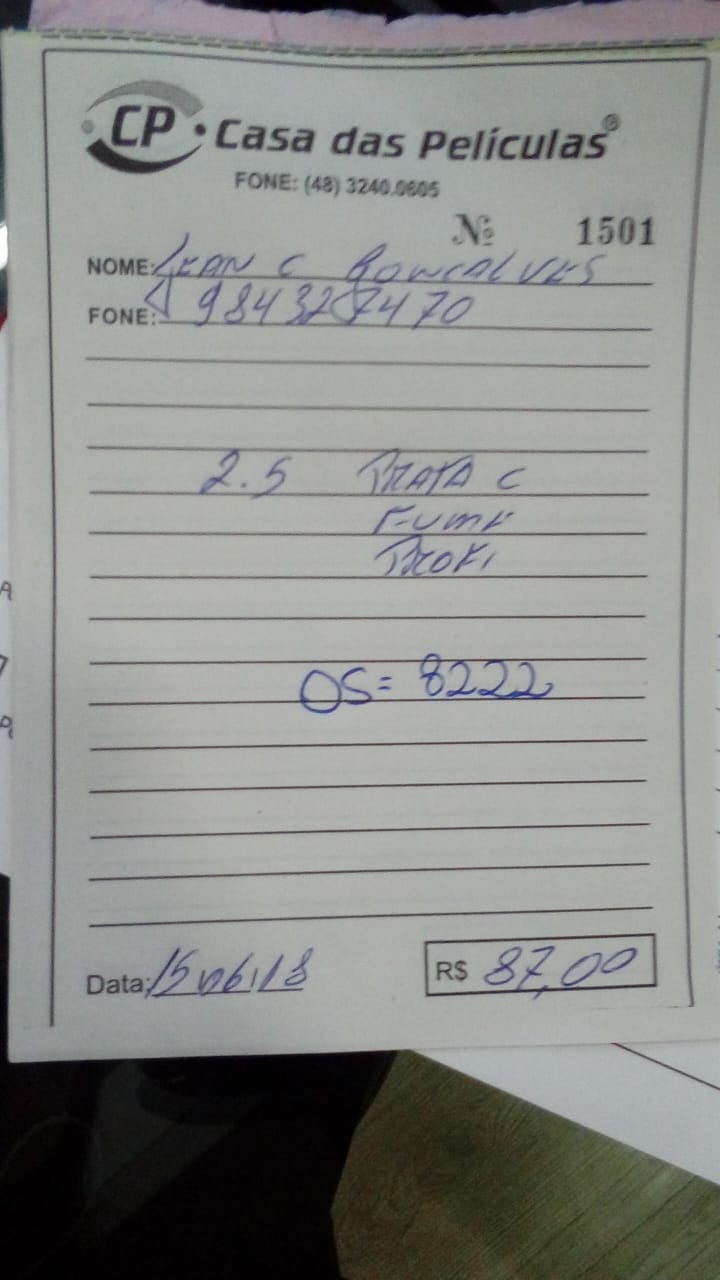 CP Casa das Películas®
FONE: (48) 3240.0605
Nº 1501
NOME: JEAN C GONCALVES
FONE: 9843287470
2.5 PRATA C
FUME
PROFI
OS= 8222
Data: 15/06/18
R$ 87,00